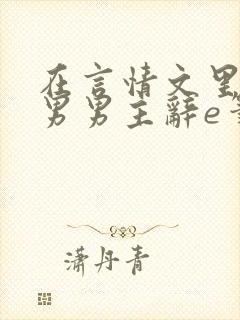 在言情文里
男男主辭e
潇丹青